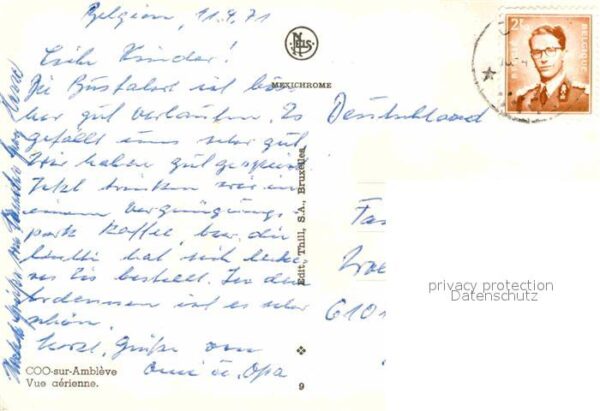 Belgien, 11.4.71
Liebe Kinder!
Die Busfahrt ist bis
her gut verlaufen. Es
gefällt uns sehr gut
Wir haben gut gespeist
Jetzt trinken wir in
einem Vergnügungs
park Kaffee, 
hat sich
Eis bestellt. In den
Ardennen ist es sehr
schön.
Herzl. Grüße von
Omi u. Opa
Nels
MEXICHROME
Edit. Thill, S.A., Bruxelles
COO-sur-Amblève
Vue aérienne.
9
2F
BELGIQUE
Deutschland
Fa
610
privacy protection
Datenschutz